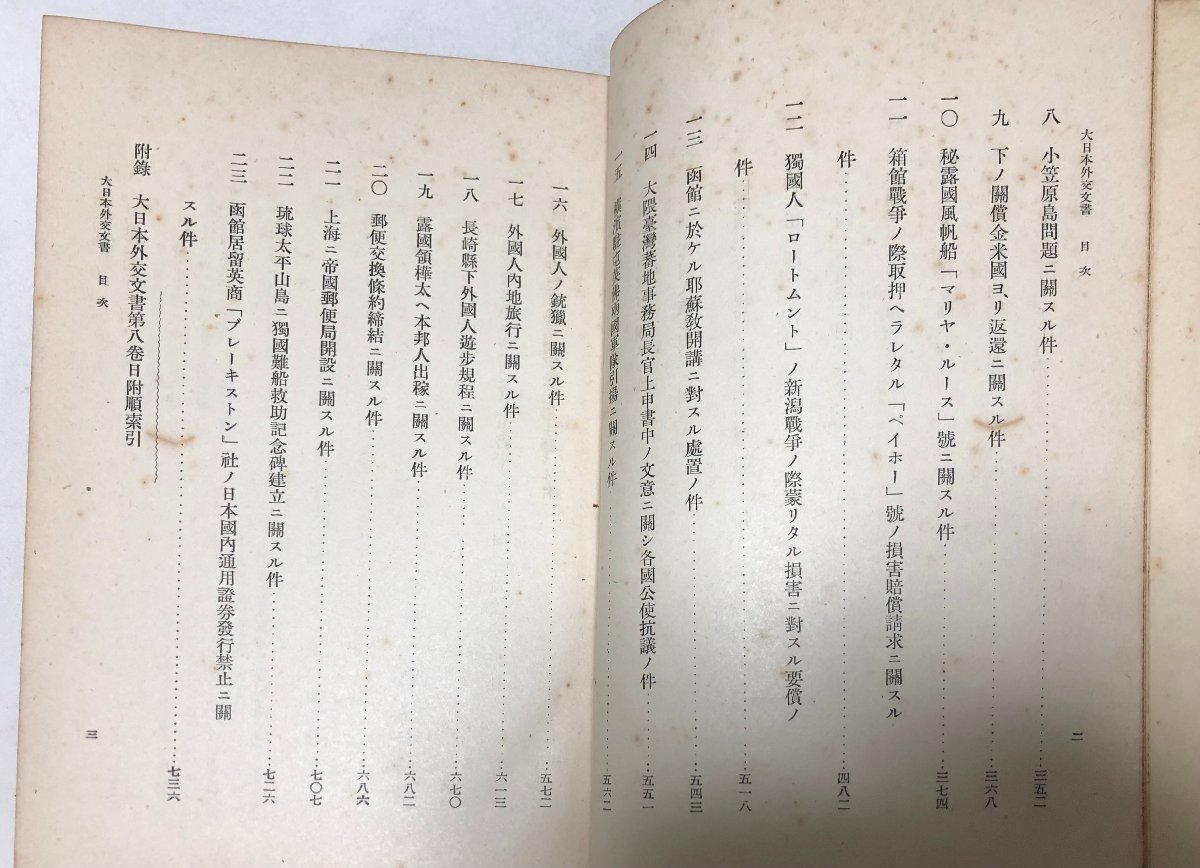 大日本外交文書 目次
八 小笠原島問題ニ關スル件……三五二
九 下ノ關償金米國ヨリ返還ニ關スル件……三六八
一〇 秘露國風帆船「マリヤ・ルース」號ニ關スル件……三七四
一一 箱館戰爭ノ際取押ヘラレタル「ペイホー」號ノ損害賠償請求ニ關スル
件……四八二
一二 獨國人「ロートムント」ノ新潟戰爭ノ際蒙リタル損害ニ對スル要償ノ
件……五一八
一三 函館ニ於ケル耶蘇敎開講ニ對スル處置ノ件……五四三
一四 大隈臺灣蕃地事務局長官上申書中ノ文意ニ關シ各國公使抗議ノ件……五五一
一五 橫濱駐屯英佛兩國軍隊引揚ニ關スル件……五六二
二
一六 外國人ノ銃獵ニ關スル件……五七二
一七 外國人內地旅行ニ關スル件……六一三
一八 長崎縣下外國人遊步規程ニ關スル件……六七〇
一九 露國領樺太ヘ本邦人出稼ニ關スル件……六八二
二〇 郵便交換條約締結ニ關スル件……六八六
二一 上海ニ帝國郵便局開設ニ關スル件……七〇七
二二 琉球太平山島ニ獨國難船救助記念碑建立ニ關スル件……七二六
二三 函館居留英商「ブレーキストン」社ノ日本國內通用證券發行禁止ニ關
スル件……七三六
附錄 大日本外交文書第八卷日附順索引
大日本外交文書 目次
三